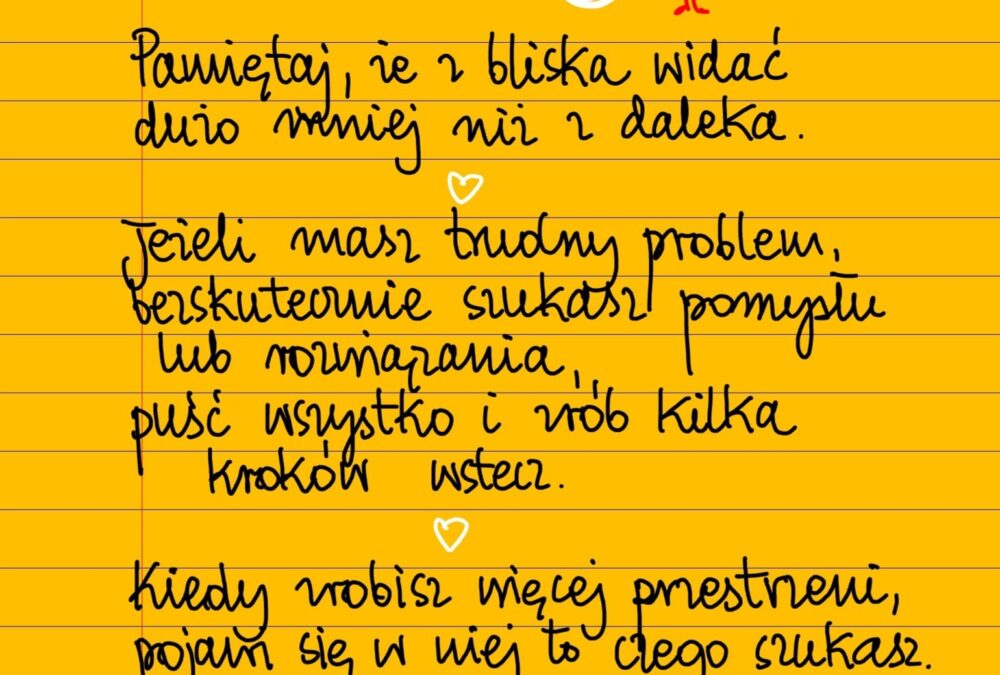 Pamiętaj, że z bliska widać
dużo mniej niż z daleka.
Jeżeli masz trudny problem,
bezskutecznie szukasz pomysłu
lub rozwiązania,
puść wszystko i zrób kilka
kroków wstecz.
Kiedy zrobisz więcej przestrzeni,
pojawi się w niej to czego szukasz.